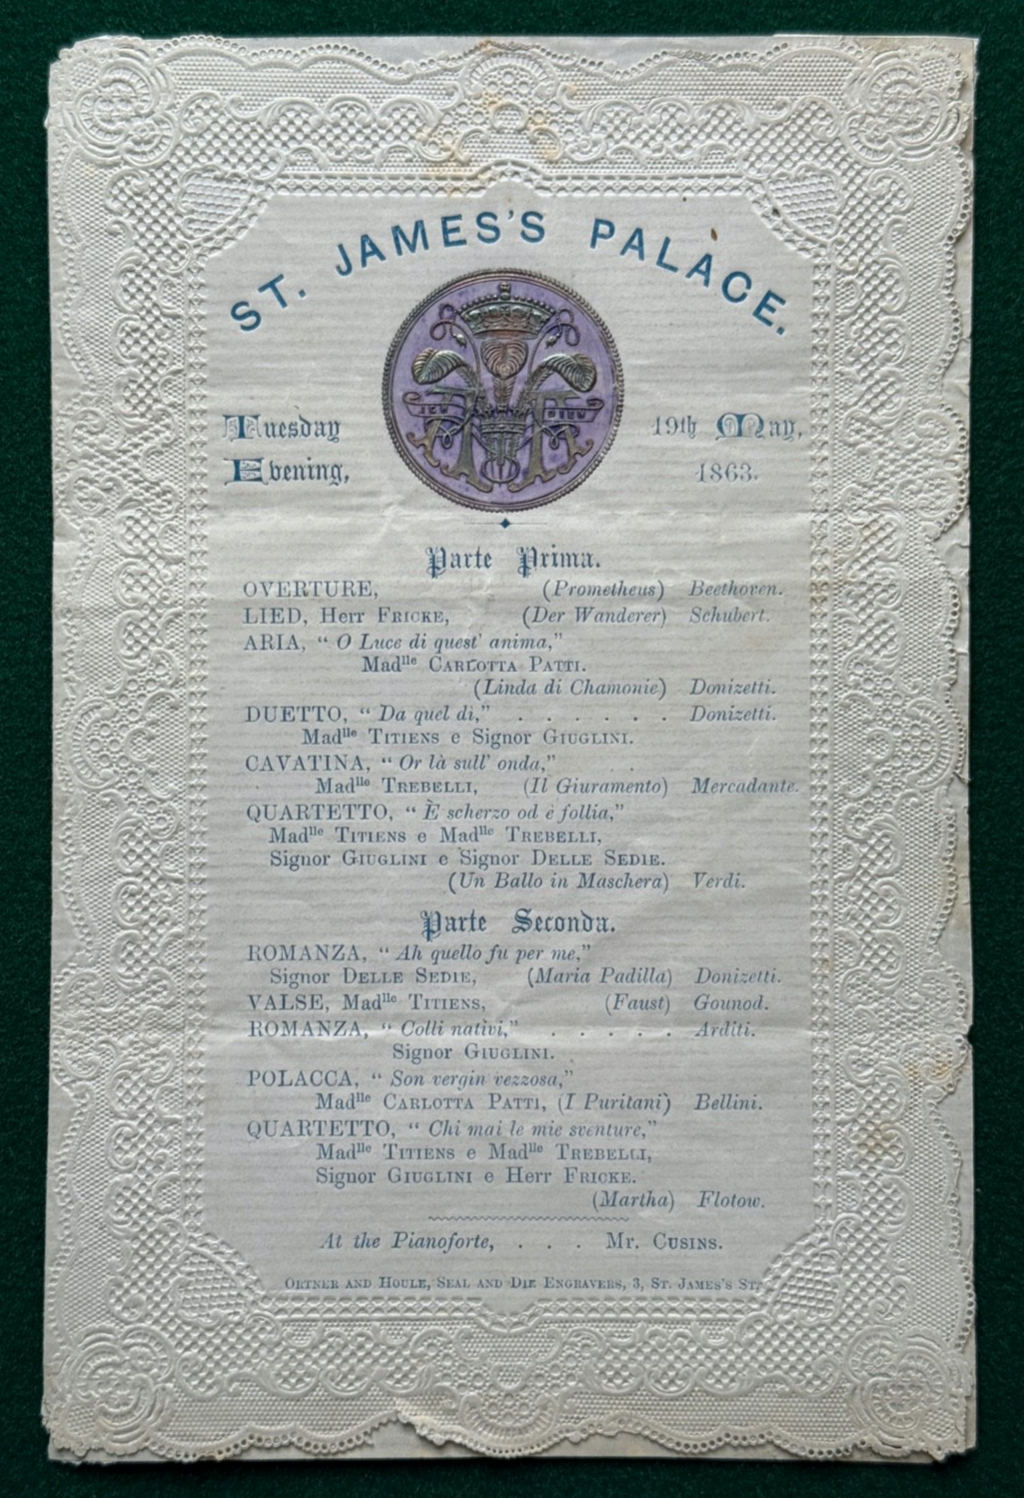 ST. JAMES'S PALACE.
ICH DIEN
Tuesday Evening,
19th May, 1863.
Parte Prima.
OVERTURE, (Prometheus) Beethoven.
LIED, Herr FRICKE, (Der Wanderer) Schubert.
ARIA, “ O Luce di quest' anima,”
Madlle CARLOTTA PATTI.
(Linda di Chamonie) Donizetti.
DUETTO, “ Da quel di,” . . . . . . Donizetti.
Madlle TITIENS e Signor GIUGLINI.
CAVATINA, “ Or là sull' onda,”
Madlle TREBELLI, (Il Giuramento) Mercadante.
QUARTETTO, “ È scherzo od è follia,”
Madlle TITIENS e Madlle TREBELLI,
Signor GIUGLINI e Signor DELLE SEDIE.
(Un Ballo in Maschera) Verdi.
Parte Seconda.
ROMANZA, “ Ah quello fu per me,”
Signor DELLE SEDIE, (Maria Padilla) Donizetti.
VALSE, Madlle TITIENS, (Faust) Gounod.
ROMANZA, “ Colli nativi,” . . . . . Arditi.
Signor GIUGLINI.
POLACCA, “ Son vergin vezzosa,”
Madlle CARLOTTA PATTI, (I Puritani) Bellini.
QUARTETTO, “ Chi mai le mie sventure,”
Madlle TITIENS e Madlle TREBELLI,
Signor GIUGLINI e Herr FRICKE.
(Martha) Flotow.
At the Pianoforte, . . . Mr. CUSINS.
ORTNER AND HOULE, SEAL AND DIE ENGRAVERS, 3, ST. JAMES'S ST.